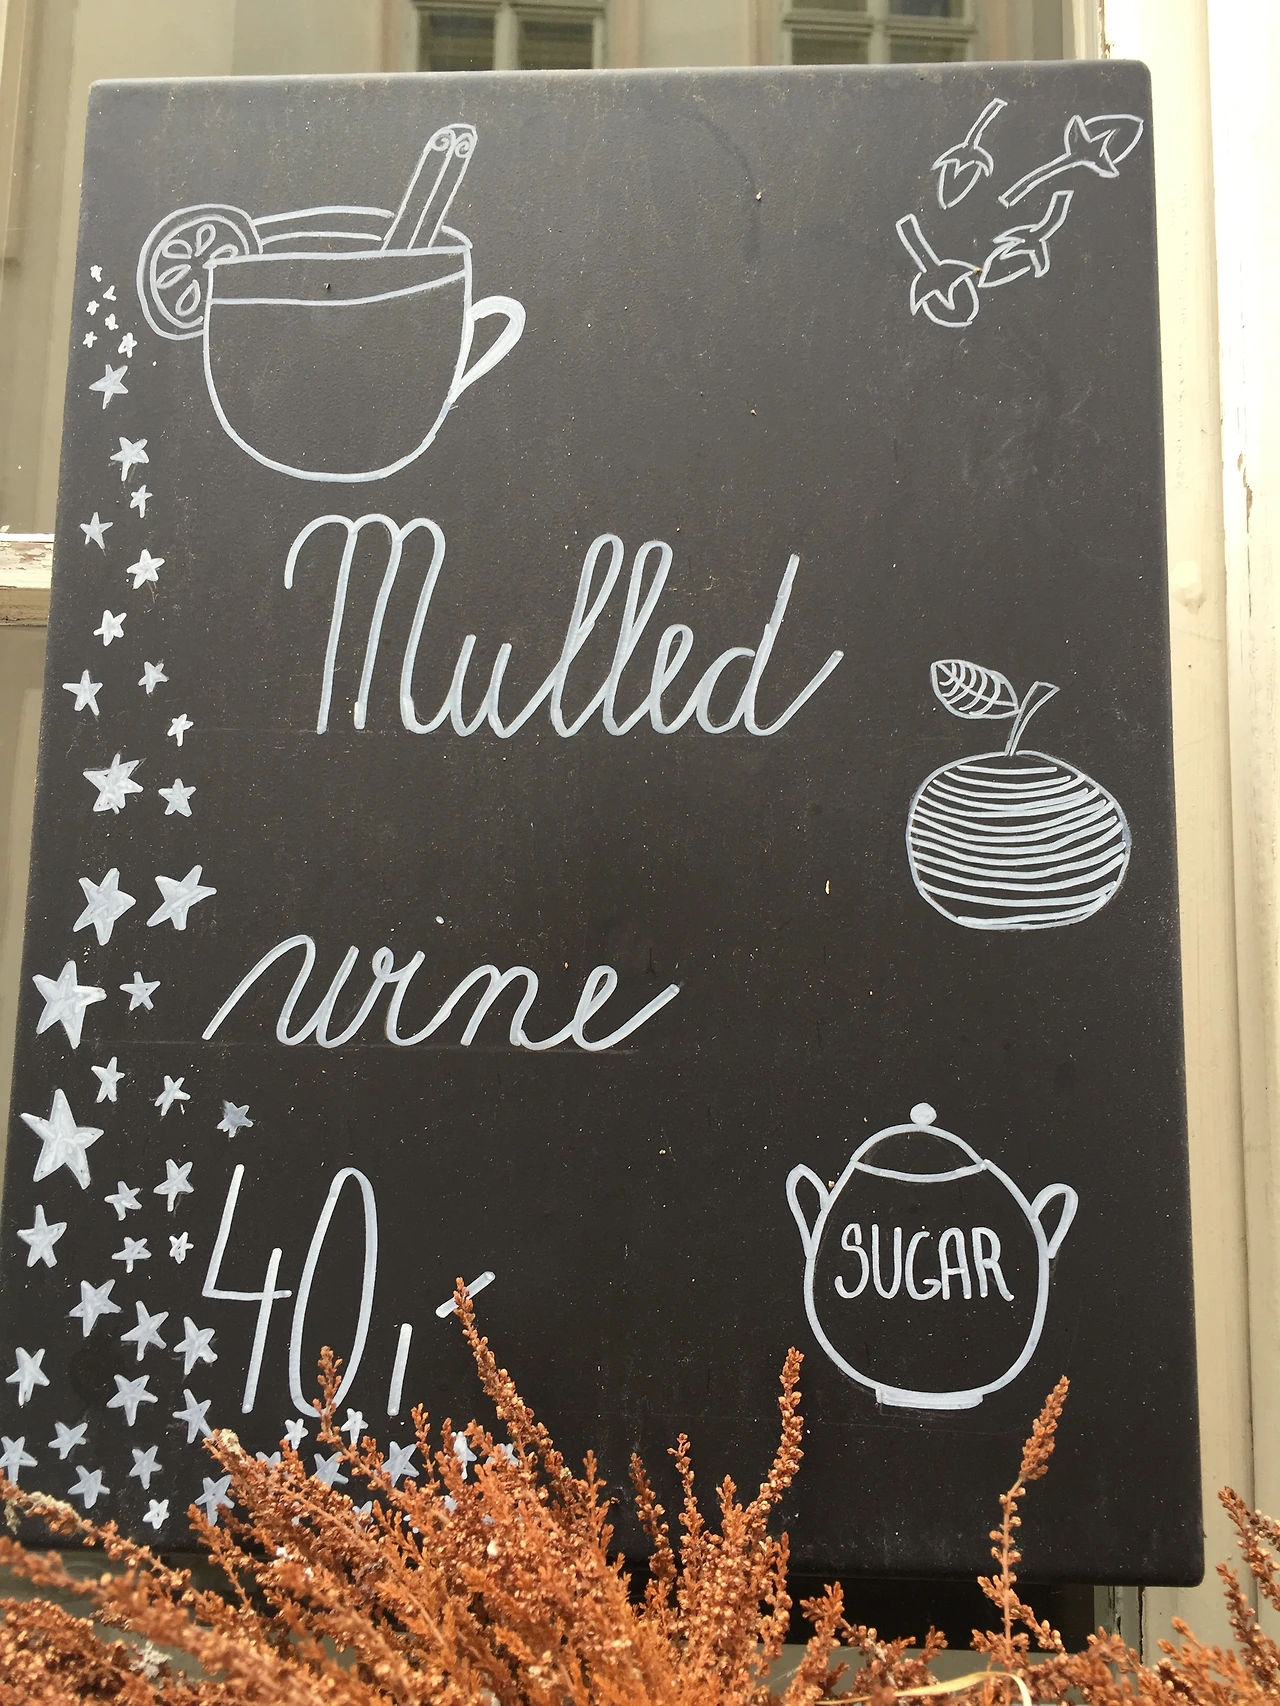 Mulled
wine
40,-
SUGAR